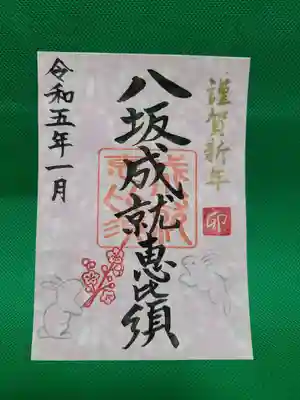 謹賀新年
卯
八坂成就恵比須
令和五年一月